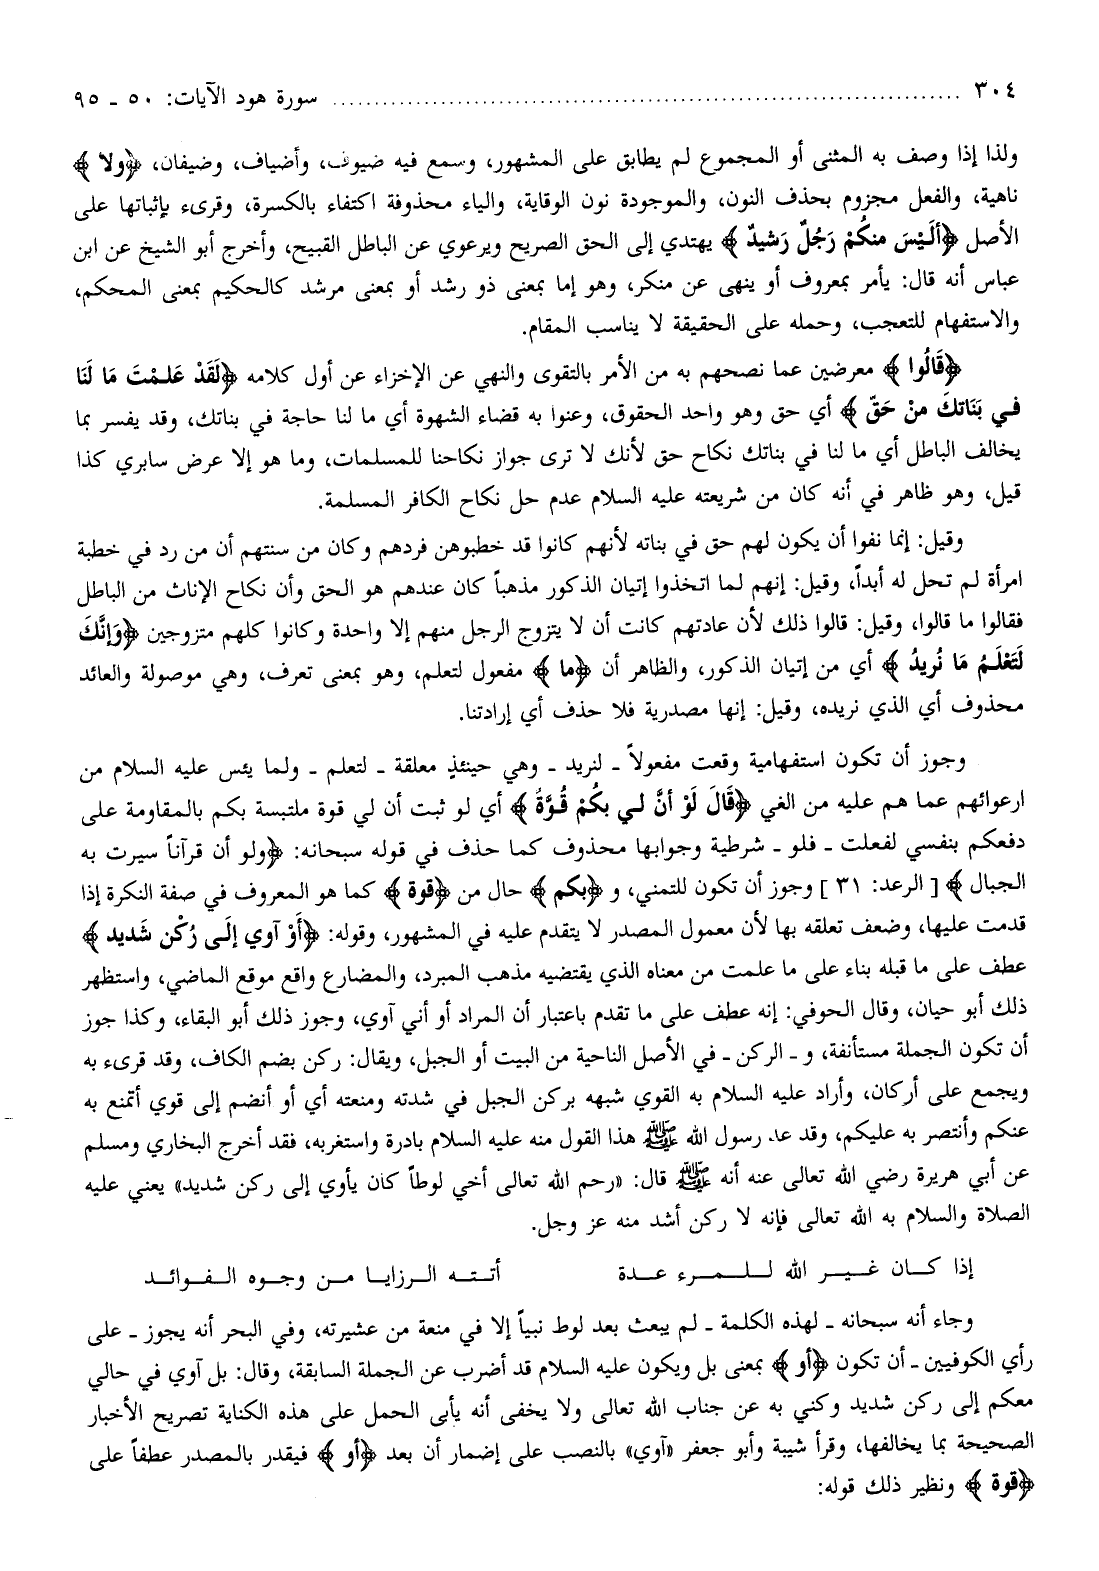 ٣٠٤ ................................................................ سورة هود الآيات: ٥٠ ـ ٩٥
ولذا إذا وصف به المثنى أو المجموع لم يطابق على المشهور، وسمع فيه ضيوف، وأضياف، وضيفان، ﴿ولا﴾
ناهية، والفعل مجزوم بحذف النون، والموجودة نون الوقاية، والياء محذوفة اكتفاء بالكسرة، وقرىء بإثباتها على
الأصل ﴿أَلَيْسَ منكُمْ رَجُلٌ رَشيدٌ﴾ يهتدي إلى الحق الصريح ويرعوي عن الباطل القبيح، وأخرج أبو الشيخ عن ابن
عباس أنه قال: يأمر بمعروف أو ينهى عن منكر، وهو إما بمعنى ذو رشد أو بمعنى مرشد كالحكيم بمعنى المحكم،
والاستفهام للتعجب، وحمله على الحقيقة لا يناسب المقام.
﴿قَالُوا﴾ معرضين عما نصحهم به من الأمر بالتقوى والنهي عن الإخزاء عن أول كلامه ﴿لَقَدْ عَلـمْتَ مَا لَنَا
فـي بَنَاتكَ منْ حَقّ﴾ أي حق وهو واحد الحقوق، وعنوا به قضاء الشهوة أي ما لنا حاجة في بناتك، وقد يفسر بما
يخالف الباطل أي ما لنا في بناتك نكاح حق لأنك لا ترى جواز نكاحنا للمسلمات، وما هو إلا عرض سابري كذا
قيل، وهو ظاهر في أنه كان من شريعته عليه السلام عدم حل نكاح الكافر المسلمة.
وقيل: إنما نفوا أن يكون لهم حق في بناته لأنهم كانوا قد خطبوهن فردهم وكان من سنتهم أن من رد في خطبة
امرأة لم تحل له أبداً، وقيل: إنهم لما اتخذوا إتيان الذكور مذهباً كان عندهم هو الحق وأن نكاح الإناث من الباطل
فقالوا ما قالوا، وقيل: قالوا ذلك لأن عادتهم كانت أن لا يتزوج الرجل منهم إلا واحدة وكانوا كلهم متزوجين ﴿وَإنَّكَ
لَتَعْلَـمُ مَا نُريدُ﴾ أي من إتيان الذكور، والظاهر أن ﴿ما﴾ مفعول لتعلم، وهو بمعنى تعرف، وهي موصولة والعائد
محذوف أي الذي نريده، وقيل: إنها مصدرية فلا حذف أي إرادتنا.
وجوز أن تكون استفهامية وقعت مفعولاً ـ لنريد ـ وهي حينئذٍ معلقة ـ لتعلم ـ ولما يئس عليه السلام من
ارعوائهم عما هم عليه من الغي ﴿قَالَ لَوْ أنَّ لـي بكُمْ قُوَّةً﴾ أي لو ثبت أن لي قوة ملتبسة بكم بالمقاومة على
دفعكم بنفسي لفعلت ـ فلو ـ شرطية وجوابها محذوف كما حذف في قوله سبحانه: ﴿ولو أن قرآناً سيرت به
الجبال﴾ [الرعد: ٣١] وجوز أن تكون للتمني، و ﴿بكم﴾ حال من ﴿قوة﴾ كما هو المعروف في صفة النكرة إذا
قدمت عليها، وضعف تعلقه بها لأن معمول المصدر لا يتقدم عليه في المشهور، وقوله: ﴿أَوْ آوي إلَى رُكْن شَديد﴾
عطف على ما قبله بناء على ما علمت من معناه الذي يقتضيه مذهب المبرد، والمضارع واقع موقع الماضي، واستظهر
ذلك أبو حيان، وقال الحوفي: إنه عطف على ما تقدم باعتبار أن المراد أو أني آوي، وجوز ذلك أبو البقاء، وكذا جوز
أن تكون الجملة مستأنفة، و ـ الركن ـ في الأصل الناحية من البيت أو الجبل، ويقال: ركن بضم الكاف، وقد قرىء به
ويجمع على أركان، وأراد عليه السلام به القوي شبهه بركن الجبل في شدته ومنعته أي أو أنضم إلى قوي أتمنع به
عنكم وأنتصر به عليكم، وقد عد رسول الله ﷺ هذا القول منه عليه السلام بادرة واستغربه، فقد أخرج البخاري ومسلم
عن أبي هريرة رضي الله تعالى عنه أنه ﷺ قال: «رحم الله تعالى أخي لوطاً كان يأوي إلى ركن شديد» يعني عليه
الصلاة والسلام به الله تعالى فإنه لا ركن أشد منه عز وجل.
إذا كـان غـيـر الله لـلـمـرء عـدة     أتـتـه الـرزايـا مـن وجـوه الـفـوائـد
وجاء أنه سبحانه ـ لهذه الكلمة ـ لم يبعث بعد لوط نبياً إلا في منعة من عشيرته، وفي البحر أنه يجوز ـ على
رأي الكوفيين ـ أن تكون ﴿أو﴾ بمعنى بل ويكون عليه السلام قد أضرب عن الجملة السابقة، وقال: بل آوي في حالي
معكم إلى ركن شديد وكني به عن جناب الله تعالى ولا يخفى أنه يأبى الحمل على هذه الكناية تصريح الأخبار
الصحيحة بما يخالفها، وقرأ شيبة وأبو جعفر «آوي» بالنصب على إضمار أن بعد ﴿أو﴾ فيقدر بالمصدر عطفاً على
﴿قوة﴾ ونظير ذلك قوله: